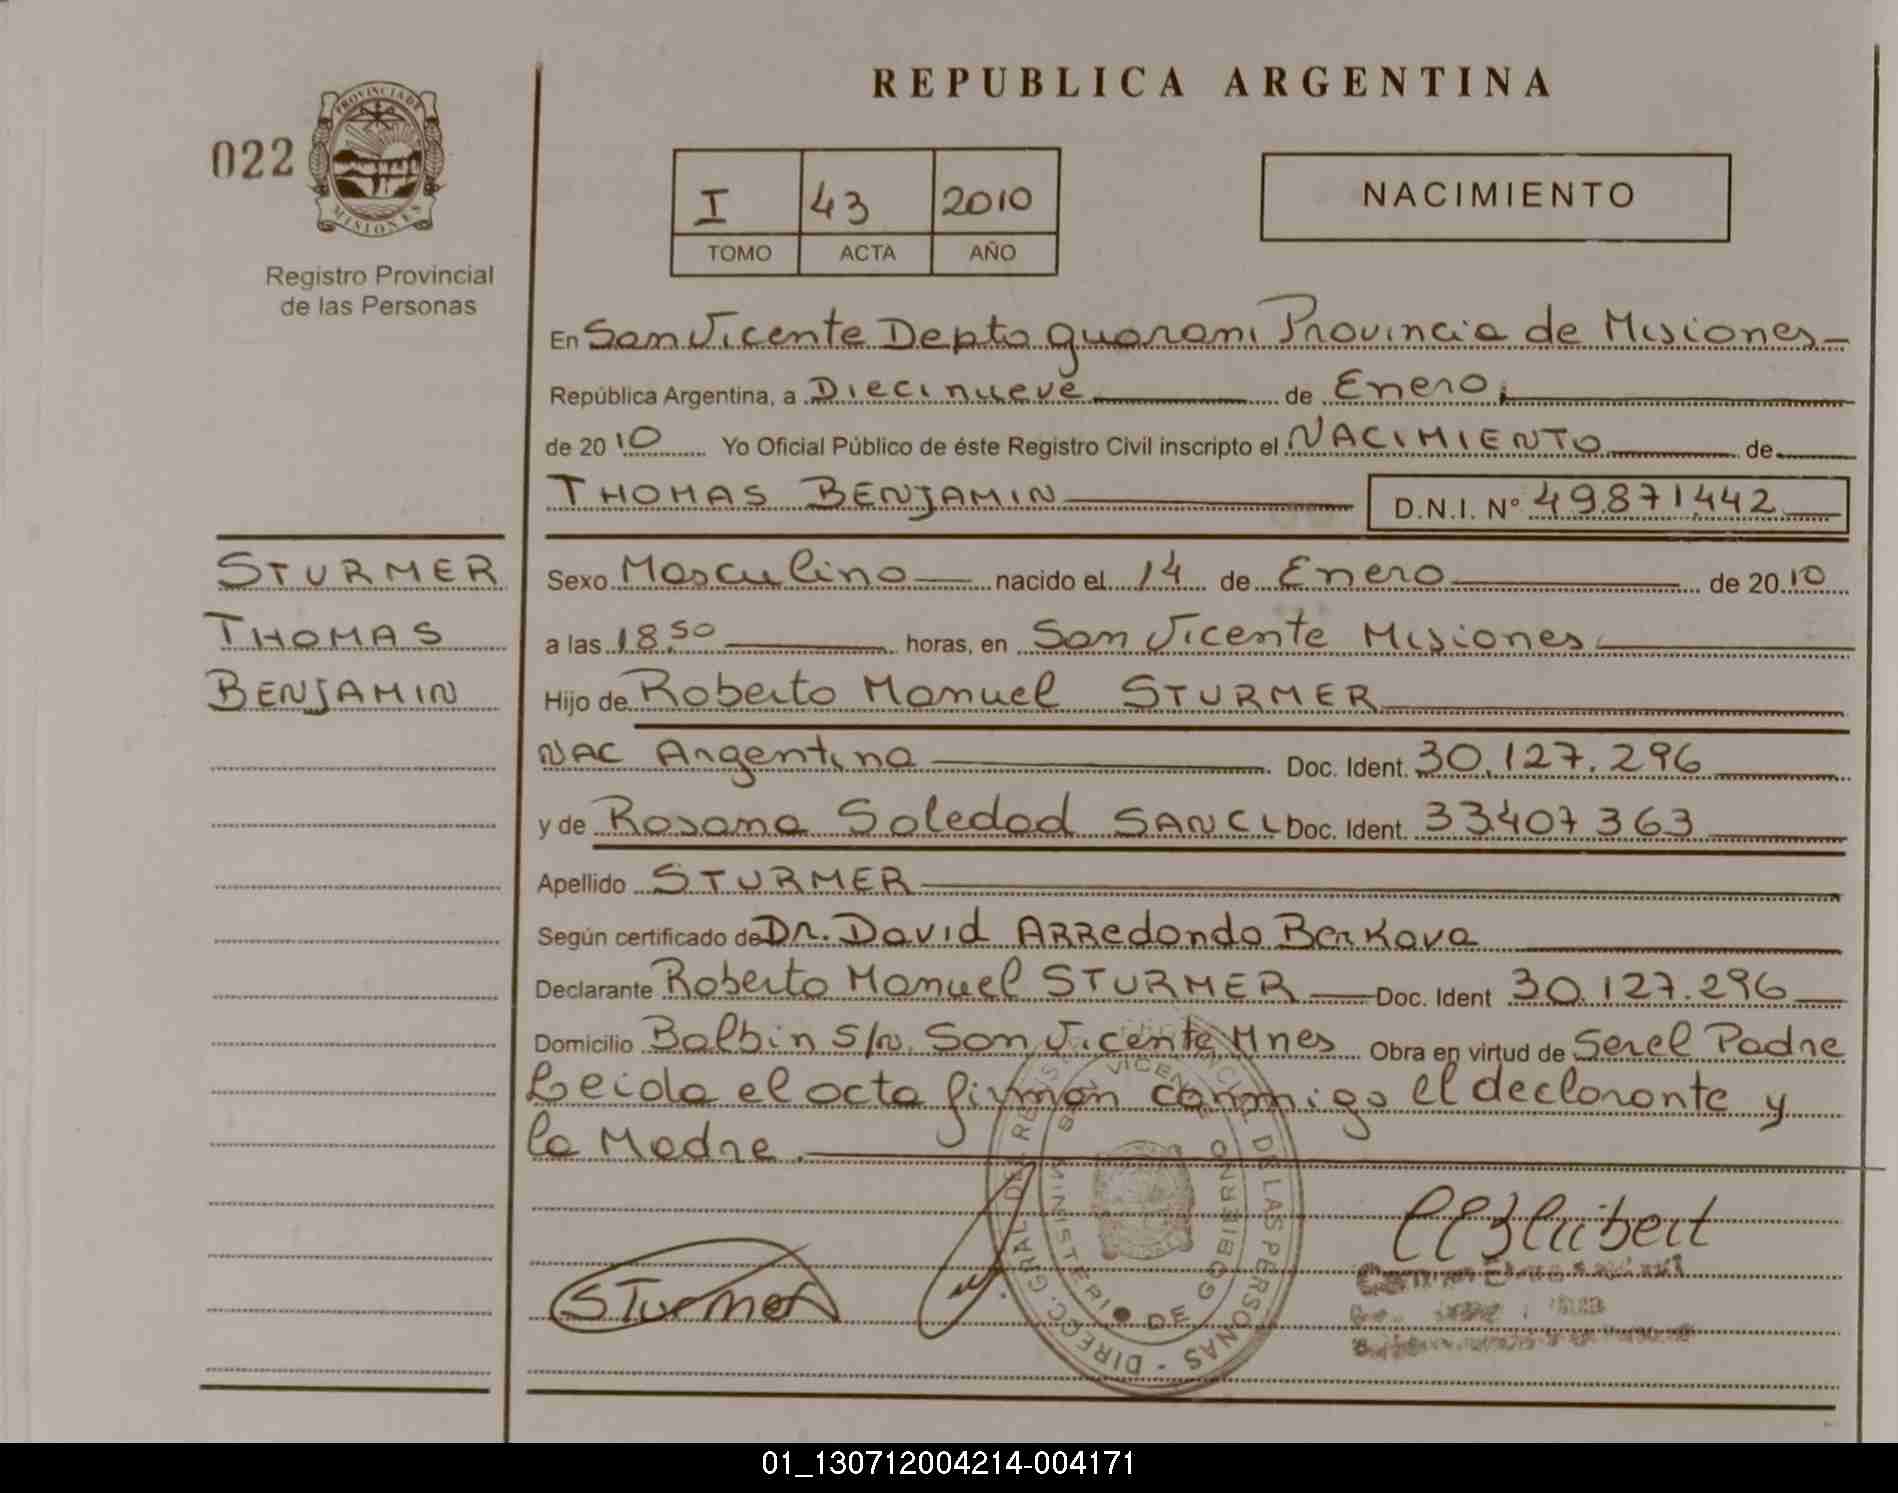 REPUBLICA ARGENTINA
022
PROVINCIA DE
MISIONES
Registro Provincial
de las Personas
I 43 2010
TOMO ACTA AÑO
NACIMIENTO
En San Vicente Depto Guarani Provincia de Misiones
República Argentina, a Diecinueve de Enero
de 2010 Yo Oficial Público de éste Registro Civil inscripto el NACIMIENTO de
THOMAS BENJAMIN D.N.I. Nº 49.871.442
STURMER
THOMAS
BENJAMIN
Sexo Masculino nacido el 14 de Enero de 2010
a las 18.50 horas, en San Vicente Misiones
Hijo de Roberto Manuel STURMER
NAC Argentina Doc. Ident. 30.127.296
y de Rosana Soledad Doc. Ident. 33407363
Apellido STURMER
Según certificado de Dr. David ARRedondo Berkova
Declarante Roberto Manuel STURMER Doc. Ident 30.127.296
Domicilio Balbin S/n. San Vicente Mnes Obra en virtud de Ser el Padre
Leida el acta firman conmigo el declarante y
la Madre.
DIRECC. GRAL DEL REGISTRO PROVINCIAL DE LAS PERSONAS
SAN VICENTE
MINISTERIO DE GOBIERNO
Sturmer
01_130712004214-004171